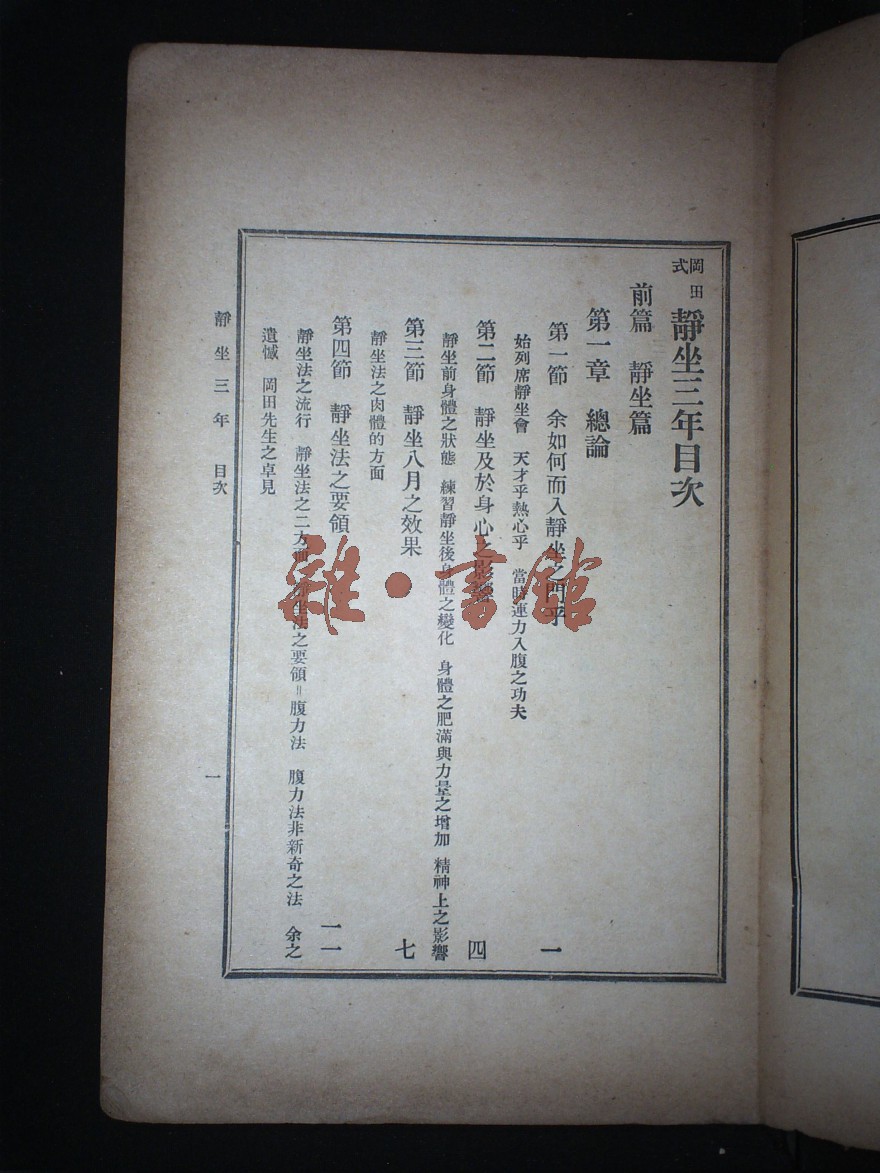 岡田式 靜坐三年目次
前篇 靜坐篇
第一章 總論
第一節 余如何而入靜坐之門乎 一
始列席靜坐會 天才乎熱心乎 當時運力入腹之功夫
第二節 靜坐及於身心之影響 四
靜坐前身體之狀態 練習靜坐後身體之變化 身體之肥滿與力量之增加 精神上之影響
第三節 靜坐八月之效果 七
靜坐法之肉體的方面
第四節 靜坐法之要領 一一
靜坐法之流行 靜坐法之二方面 靜坐法之要領=腹力法 腹力法非新奇之法 余之
遺憾 岡田先生之卓見
靜坐三年 目次 一
雜·書館